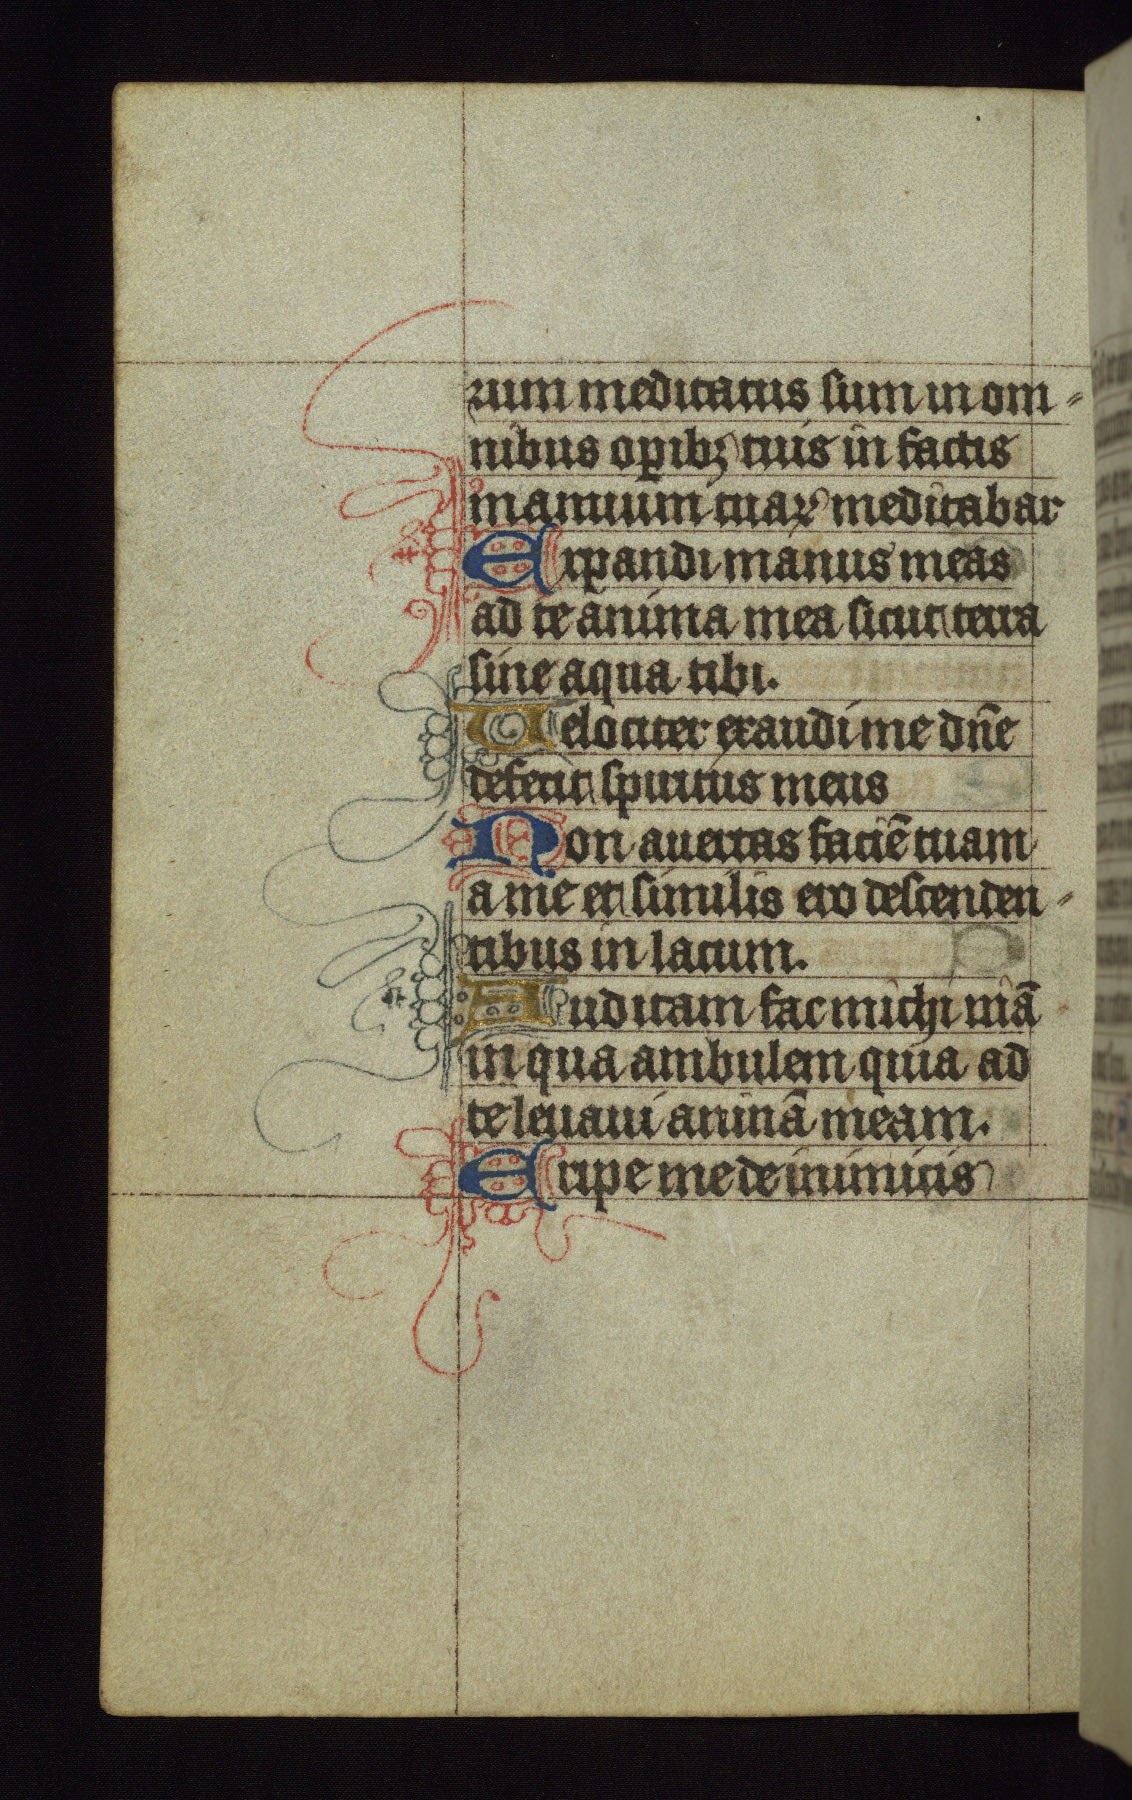 rum meditatus sum in om-
nibus op̲ib; tuis in factis
manuum tuaꝝ meditabar
Expandi manus meas
ad te anima mea sicut terra
sine aqua tibi.
Velociter exaudi me dn̄e
defecit spiritus meus
Non auertas faciē tuam
a me et similis ero descenden-
tibus in lacum.
Auditam fac michi
in qua ambulem quia ad
te leuaui animā meam.
Eripe me de inimicis